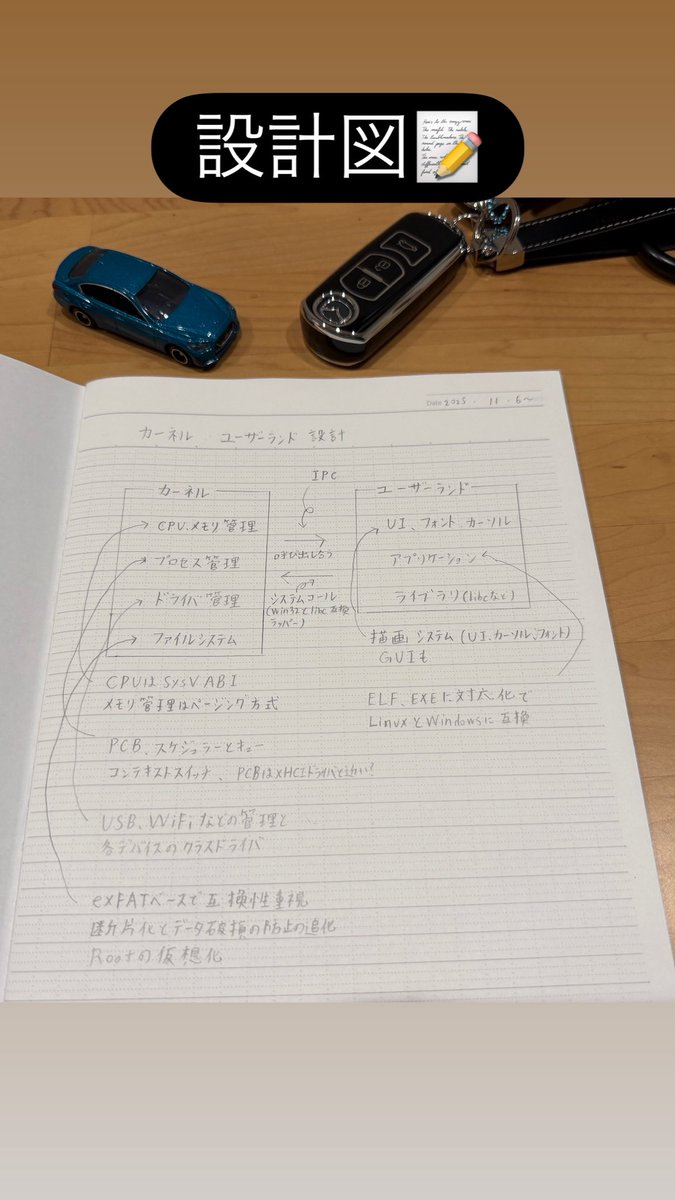 設計図
Date 2025 ・ 11 ・ 6〜
カーネル ユーザーランド 設計
IPC
カーネル
CPU、メモリ管理
プロセス管理
ドライバ管理
ファイルシステム
呼び出し合う
システムコール
(Win32とlibc互換
ラッパー)
ユーザーランド
UI、フォント、カーソル
アプリケーション
ライブラリ(libcなど)
描画システム(UI、カーソル、フォント)
GUIも
ELF、EXEに対応化で
LinuxとWindowsに互換
CPUはSysV ABI
メモリ管理はページング方式
PCB、スケジュラーとキュー
コンテキストスイッチ、PCBはxHCIドライバと近い?
USB、WiFiなどの管理と
各デバイスのクラスドライバ
exFATベースで互換性重視
断片化とデータ破損の防止の追化
Rootの仮想化